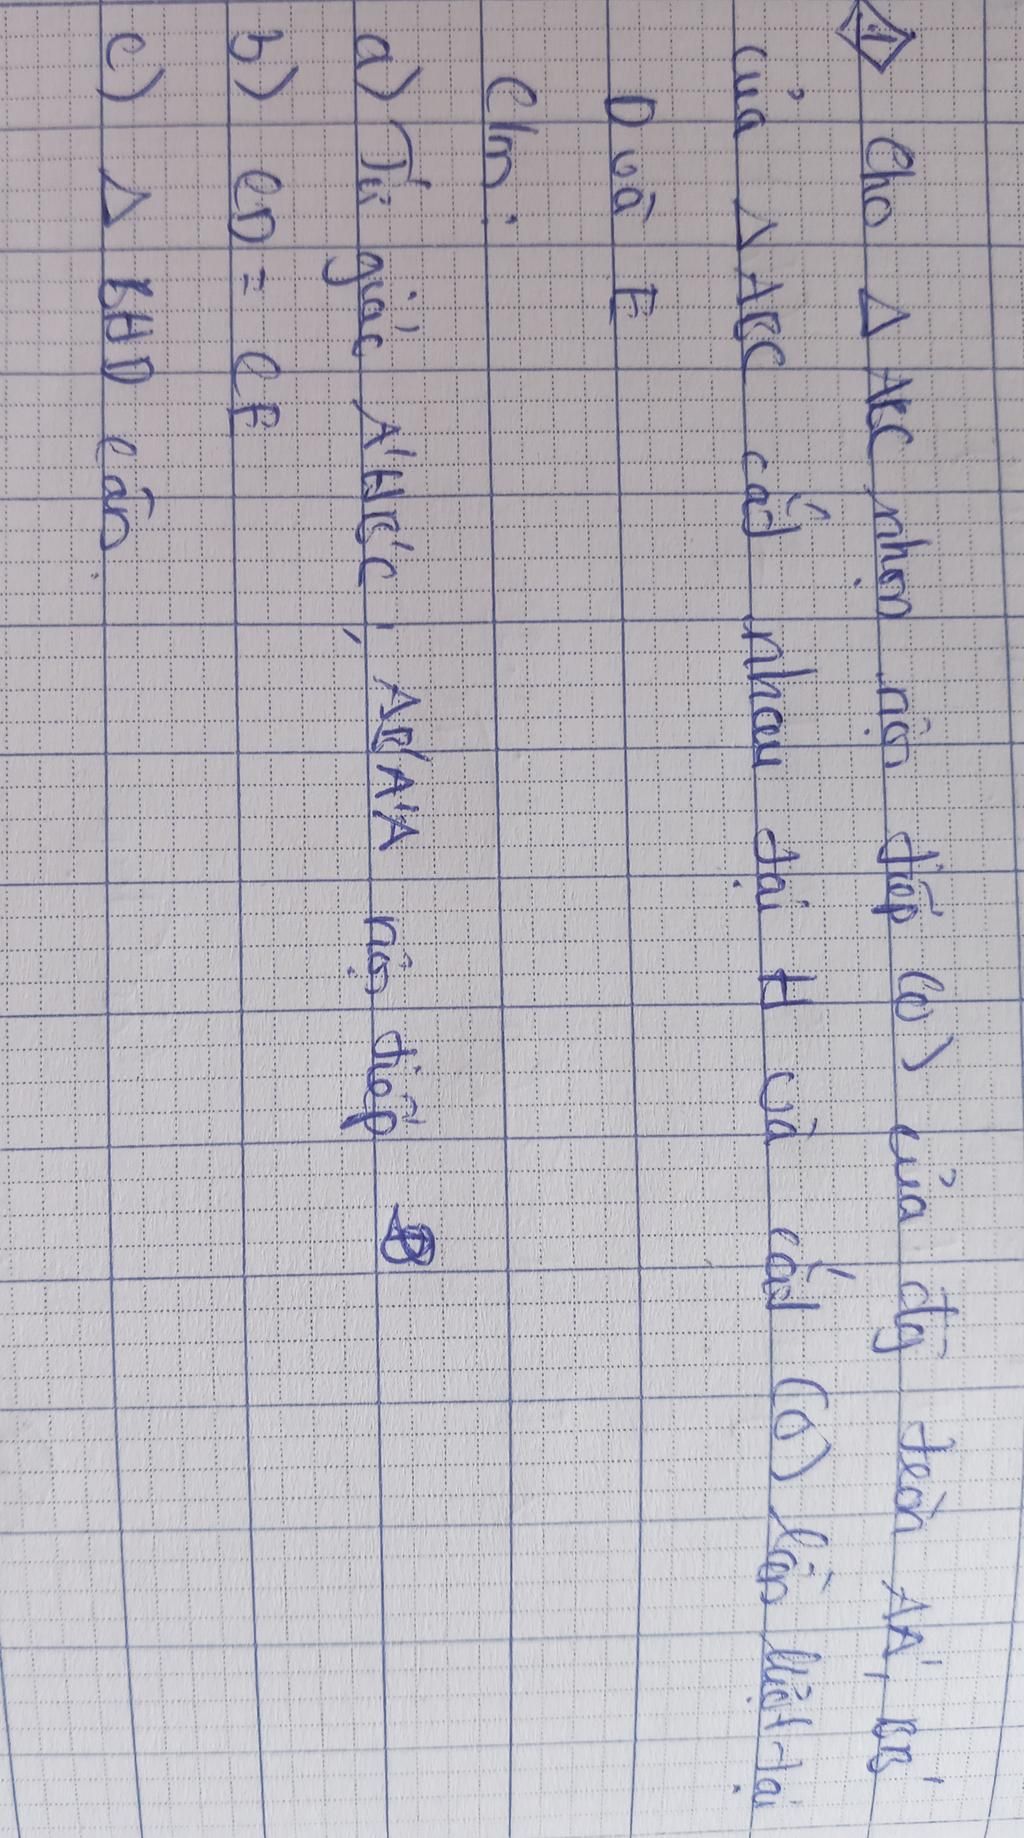 1 Cho Δ ABC nhọn nội tiếp (O) của đg tròn AA', BB'
của Δ ABC cắt nhau tại H và cắt (O) lần lượt tại
D và E
C/m:
a) Tứ giác A'HB'C, AB'A'A nội tiếp
b) CD = CE
c) Δ BHD cân